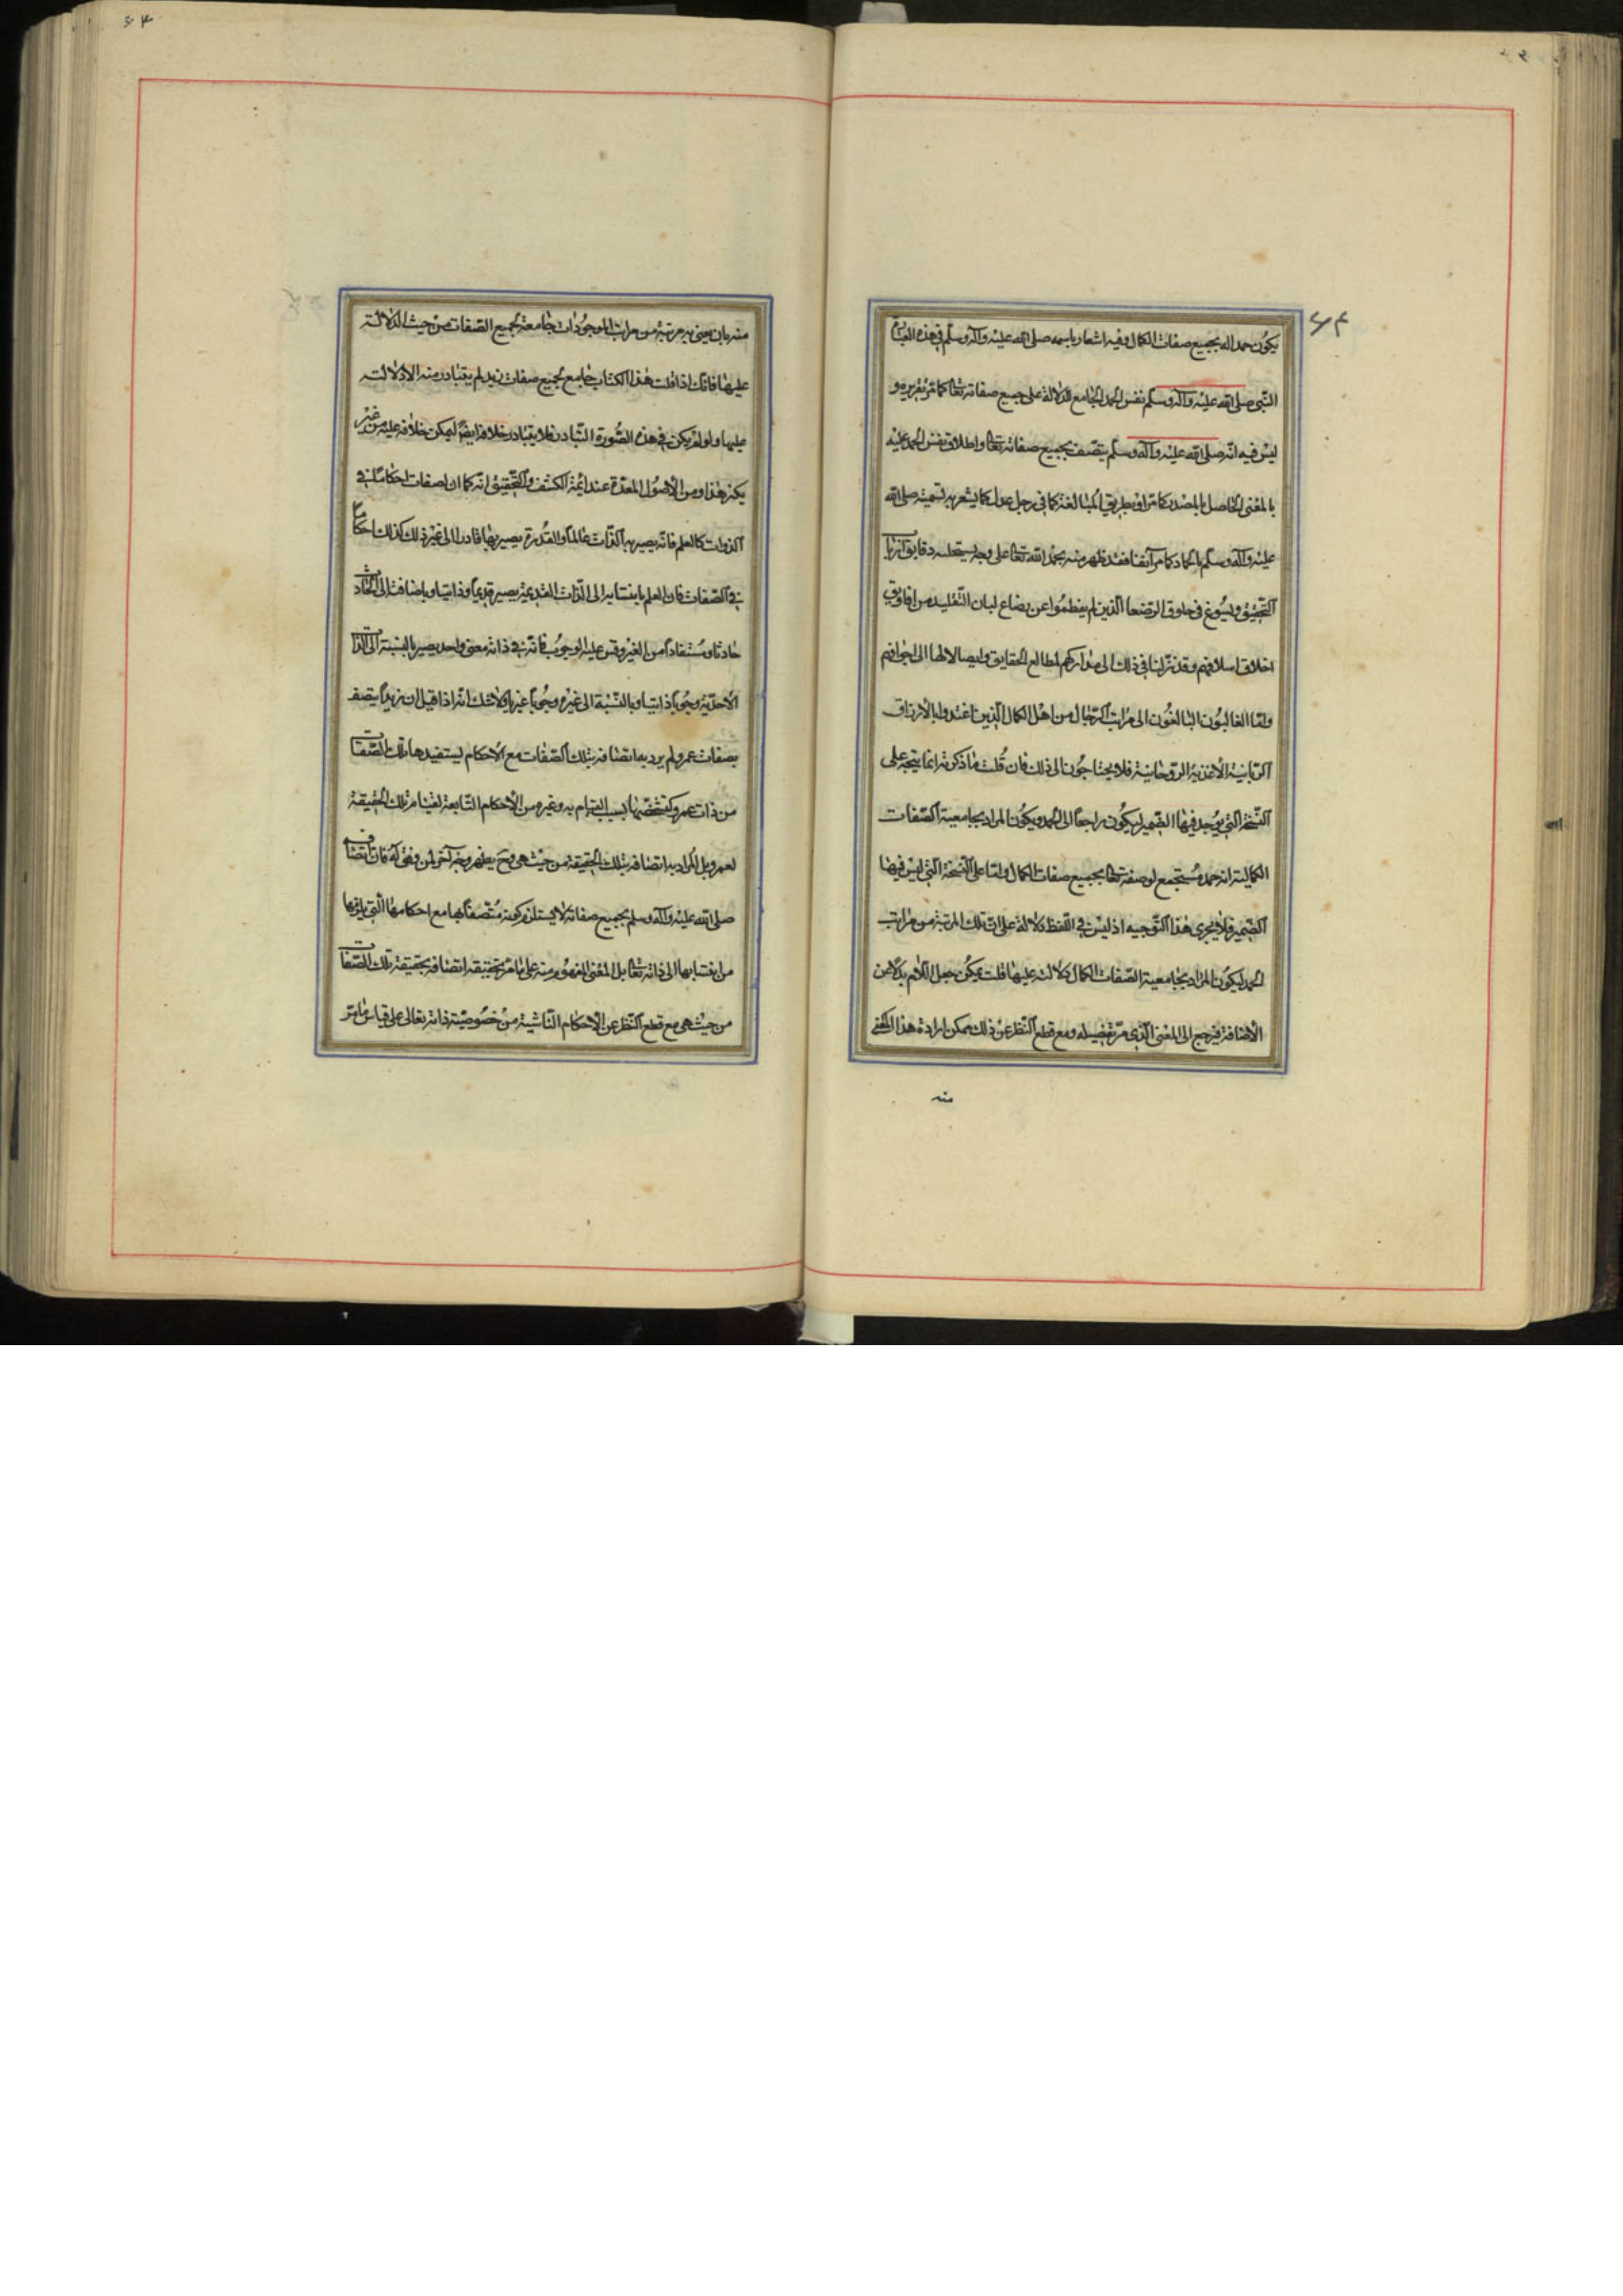 يكون حمد اله بجميع صفات الكمال وفيه اشعار باسمه صلى الله عليه وآله وسلم في هذه العبارة
النبى صلى الله عليه وآله وسلم نفس الحمد الجامع للدلالة على جميع صفاته تعالى كما مر تقريره و
ليس فيه انه صلى الله عليه وآله وسلم يتصف بجميع صفاته تعالى واطلاق نفس الحمد عليه
بالمعنى الحاصل بالمصدر كما مر او بطريق المبالغة كما في رجل عدل كما يشعر به تسميته صلى الله
عليه وآله وسلم بالحماد كما مر آنفا فقد ظهر منه بحمد الله تعالى على وجه دقايق
التحقيق ويسوغ فى حلوق الرضعا الذين لم يفطموا عن رضاع لبان التقليد من افاويق
اخلاق اسلافهم وقد نزلنا في ذلك الى مداركهم لمطالع الحقايق وايصالا لها الى اجوافهم
واما الغالبون البالغون الى مراتب الرجال من اهل الكمال الذين اغتدوا بالأرزاق
الربانية الأغذية الروحانية فلا يحتاجون الى ذلك فان قلت ما ذكرته انما يتجه على
النسخة التي يوجد فيها الضمير ليكون راجعا الى الحمد ويكون المراد بجامعية الصفات
الكمالية انه حمد مستجمع لوصفه تعالى بجميع صفات الكمال واما على النسخة التي ليس فيها
الضمير فلا يجرى هذا التوجيه اذ ليس في اللفظ دلالة على ان تلك المرتبة من مراتب
الحمد ليكون المراد بجامعية الصفات الكمال دلالته عليها قلت يمكن جعل اللام بدلا من
الاضافة فيرجع الى المعنى الذى مر تفصيله ومع قطع النظر عن ذلك يمكن ارادة هذا المعنى
منه
منه بان يعنى به مرتبة من مراتب الموجودات جامعة لجميع الصفات من حيث الدلالة
عليها فانك اذا قلت هذا الكتاب جامع لجميع صفات زيد لم يتبادر منه الا دلالته
عليها ولو لم يكن في هذه الصورة التبادر فلا يتبادر خلافه ايضا ليمكن خلافه عليه من غير
هذا ومن الأصول المقررة عند ائمة الكشف والتحقيق انه كما ان لصفات احكاما فى
الذوات كالعلم فانه يصير به الذات عالما والقدرة يصير بها قادرا الى غير ذلك كذلك احكام
فى الصفات فان العلم بانتسابه الى الذات القديمة يصير قديما وذاتيا وباضافته الى الحادث
حادثا ومستفادا من الغير وقس عليه الوجوب فانه فى ذاته معنى واحد يصير بالنسبة الى الذات
الأحدية وجوبا ذاتيا وبالنسبة الى غيره وجوبا غيريا ولا شك انه اذا قيل ان زيدا يتصف
بصفات عمرو لم يرد به اتصافه بتلك الصفات مع الاحكام ليستفيدها تلك الصفات
من ذات عمرو كتشخصها بسبب القيام به وغيره من الأحكام التابعة لقيام تلك الحقيقة
لعمرو بل المراد به اتصافه بتلك الحقيقة من حيث هى وح يظهر وجه آخر لمن وفق له فان اتصافه
صلى الله عليه وآله وسلم بجميع صفاته لا يستلزم كونه متصفا بها مع احكامها التي يلزمها
من انتسابها الى ذاته تعالى بل المعنى المفهوم منه على ما مر تحقيقه اتصافه بحقيقة تلك الصفات
من حيث هى مع قطع النظر عن الاحكام الناشية من خصوصية ذاته تعالى على قياس ما مر